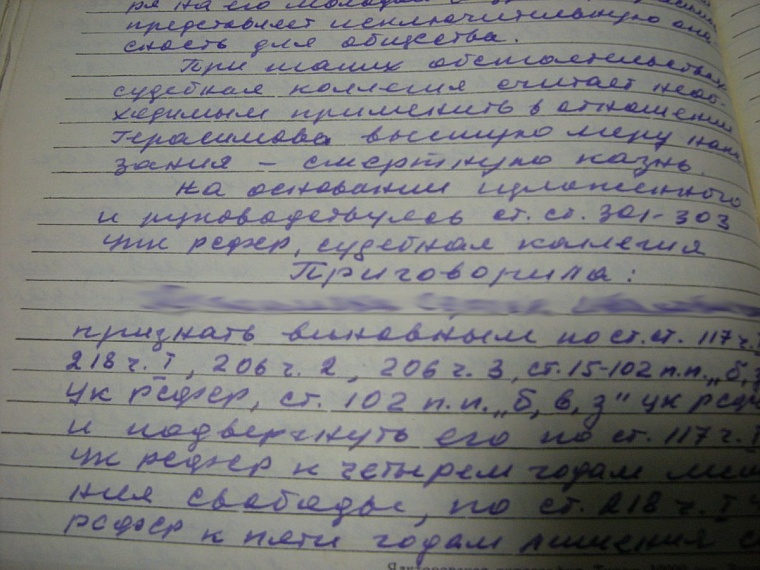 ря на его молодо
представляет исключительную опа
сность для общества.
При таких обстоятельствах
судебная коллегия считает необ-
ходимым применить в отношении
Герасимова высшую меру нака
зания – смертную казнь.
На основании изложенного
и руководствуясь ст. ст. 301-303
УПК РСФСР, судебная коллегия
Приговорила:
признать виновным по ст. ст. 117 ч. I
218 ч. I, 206 ч. 2, 206 ч. 3, ст. 15-102 п.п. „б,
УК РСФСР, ст. 102 п.п. „б, в, з" УК РСФ
и подвергнуть его по ст. 117 ч. I
УК РСФСР к четырем годам лише
ния свободы, по ст. 218 ч. I
РСФСР к пяти годам лишения с